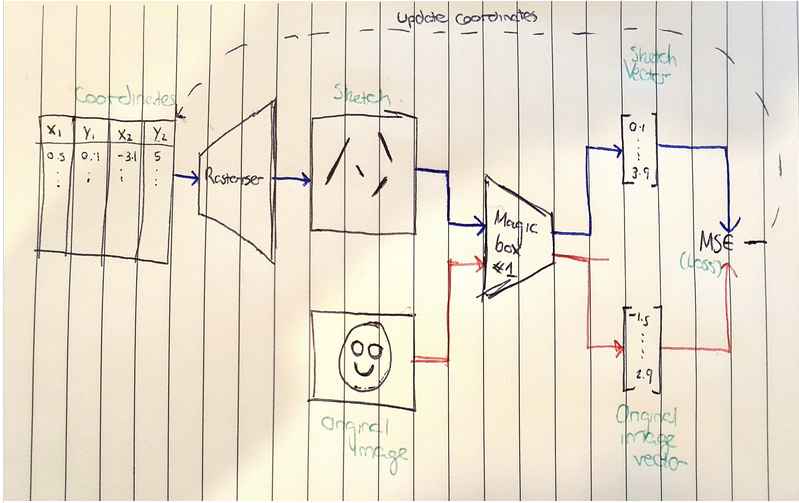 update coordinates
Coordinates
X1 Y1 X2 Y2
0.5 0.1 -3.1 5
Rasteriser
Sketch
Magic
box
#1
Original
Image
Sketch
Vector
0.1
3.9
MSE
(Loss)
-1.5
2.9
Original
image
vector